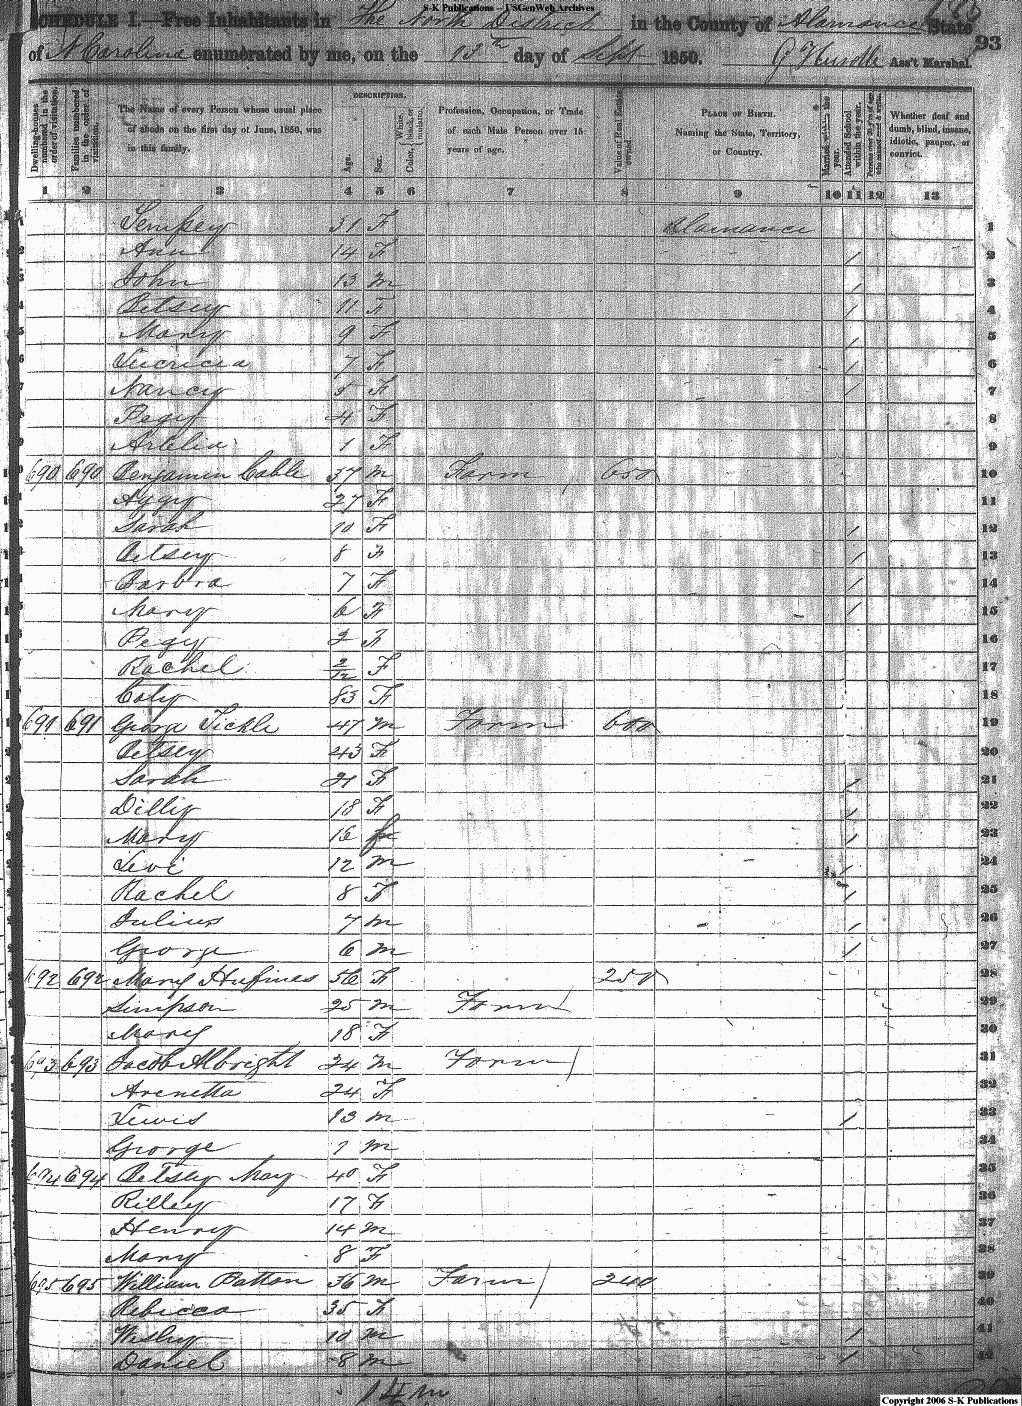 S-K Publications – USGenWeb Archives
SCHEDULE I.—Free Inhabitants in The North District in the County of Alamance State
of N Carolina enumerated by me, on the 13th day of Sept 1850. G Hurdle Ass't Marshal.
93
Dwelling-houses numbered in the order of visitation.
Families numbered in the order of visitation.
The Name of every Person whose usual place of abode on the first day of June, 1850, was in this family.
DESCRIPTION.
Age.
Sex.
Color, White, black, or mulatto.
Profession, Occupation, or Trade of each Male Person over 15 years of age.
Value of Real Estate owned
PLACE OF BIRTH. Naming the State, Territory, or Country.
Married within the year.
Attended School within the year.
Persons over 20 y'rs of age who cannot read & write.
Whether deaf and dumb, blind, insane, idiotic, pauper, or convict.
1 2 3 4 5 6 7 8 9 10 11 12 13
31 F Alamance 1
Ann 14 F 1 2
John 13 m 1 3
Betsey 11 F 1 4
Mary 9 F 1 5
Lucricia 7 F 1 6
Nancy 5 F 1 7
Pegy 4 F 8
1 F 9
690 690 Benjamin Cable 37 m Farm 600 10
27 F 11
Sarah 10 F 1 12
Betsey 8 F 1 13
Barbra 7 F 1 14
Mary 6 F 1 15
Pegy 2 F 16
Rachel 2/12 F 17
Caty 83 F 18
691 691 George Tickle 47 m Farm 600 19
Betsey 43 F 20
Sarah 21 F 1 21
Dilly 18 F 1 22
Mary 16 F 1 23
Levi 12 m 1 24
Rachel 8 F 1 25
Julius 7 m 1 26
George 6 m 1 27
692 692 Mary Hufines 56 F 250 28
Simpson 25 m Farm 29
Mary 18 F 30
693 693 Jacob Albright 24 m Farm 31
Arenetta 24 F 32
Lewis 13 m 1 33
George 1 m 34
694 694 Betsey May 40 F 35
Rilley 17 F 36
Henry 14 m 37
Mary 8 F 38
695 695 William Patton 36 m Farm 240 39
Rebicca 35 F 40
Wesly 10 m 1 41
Daniel 8 m 1 42
14 m
Copyright 2006 S-K Publications